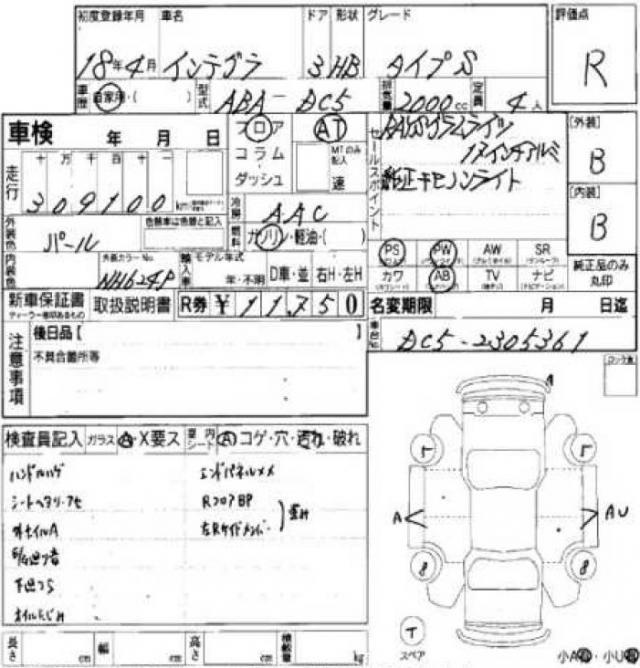 初度登録年月 車名 ドア 形状 グレード 評価点
18年4月 インテグラ 3 HB タイプS R
車歴 自家用・( ) 型式 ABA-DC5 排気量 2000cc 定員 4人
車検 年 月 日 フロア AT セールスポイント
コラム・ MTのみ記入 17インチアルミ [外装]
走行 十 万 千 百 十 一 ダッシュ 速 純正キセノンライト B
309100 km
冷房 AAC [内装]
外装色 パール 色替車は色替と記入 燃料 ガソリン・軽油・( ) B
PS PW AW SR
内装色 外装カラーNo. NH624P 輸入車 モデル年式 年・不明 D車・並 右H・左H カワ AB TV ナビ 純正品のみ丸印
新車保証書 取扱説明書 R券 ¥11,750 名変期限 月 日迄
後日品[ ] 車台No. DC5-2305361
注意事項 不具合箇所等
検査員記入 ガラス A・X要ス 車内シート A コゲ・穴・汚れ・破れ
ハンドルハゲ エンドパネルメメ
シートヘタリ・アセ RフロアBP
外モールA
下廻りS
オイルにじみ
A
5 5
A AU
8 8
T
スペア 小A・小U
長さ cm 幅 cm 高さ cm 積載量 kg